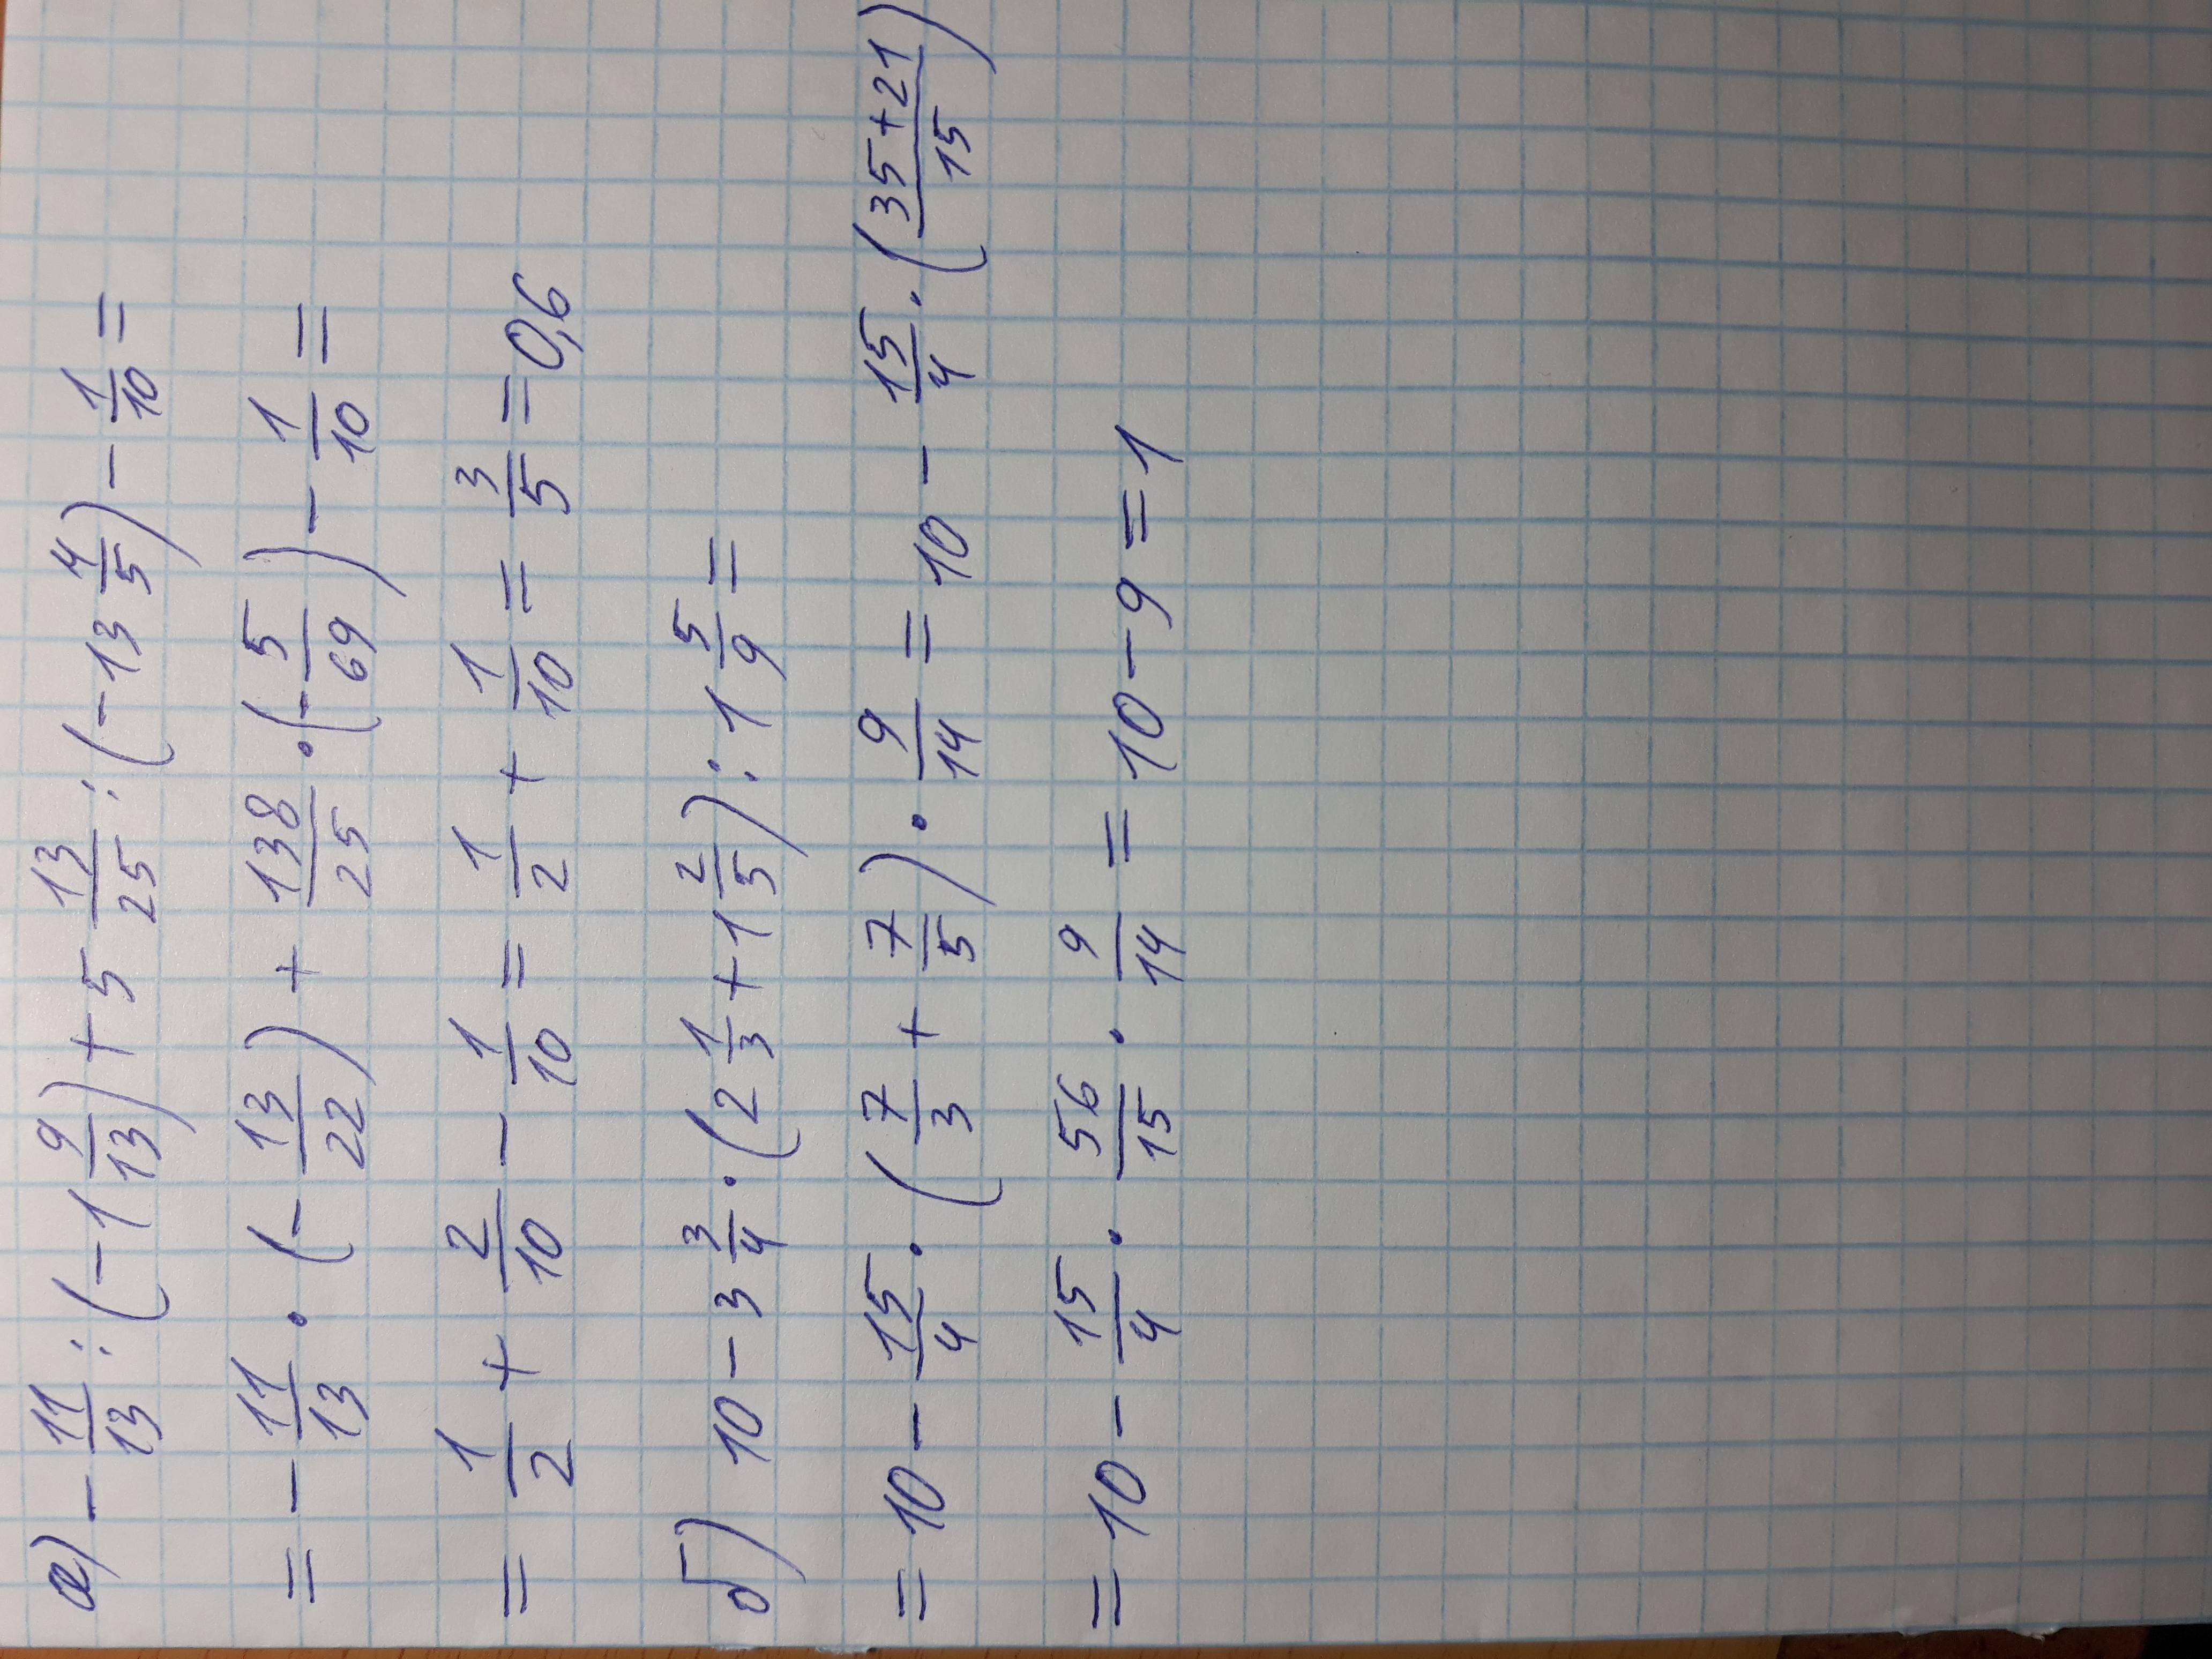 а) - 11/13 : (-1 9/13) + 5 13/25 : (-13 4/5) - 1/10 =
= - 11/13 · (- 13/22) + 138/25 · (- 5/69) - 1/10 =
= 1/2 + 2/10 - 1/10 = 1/2 + 1/10 = 3/5 = 0,6
б) 10 - 3 3/4 · (2 1/3 + 1 2/5) : 1 5/9 =
= 10 - 15/4 · (7/3 + 7/5) · 9/14 = 10 - 15/4 · (35+21/15)
= 10 - 15/4 · 56/15 · 9/14 = 10 - 9 = 1